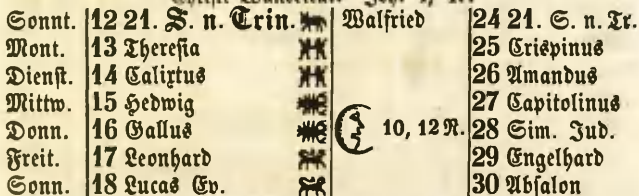 Sonnt. 12 21. S. n. Trin. Walfried 24 21. S. n. Tr.
Mont. 13 Theresia 25 Crispinus
Dienst. 14 Calixtus 26 Amandus
Mittw. 15 Hedwig 27 Capitolinus
Donn. 16 Gallus 10, 12 N. 28 Sim. Jud.
Freit. 17 Leonhard 29 Engelhard
Sonn. 18 Lucas Ev. 30 Absalon